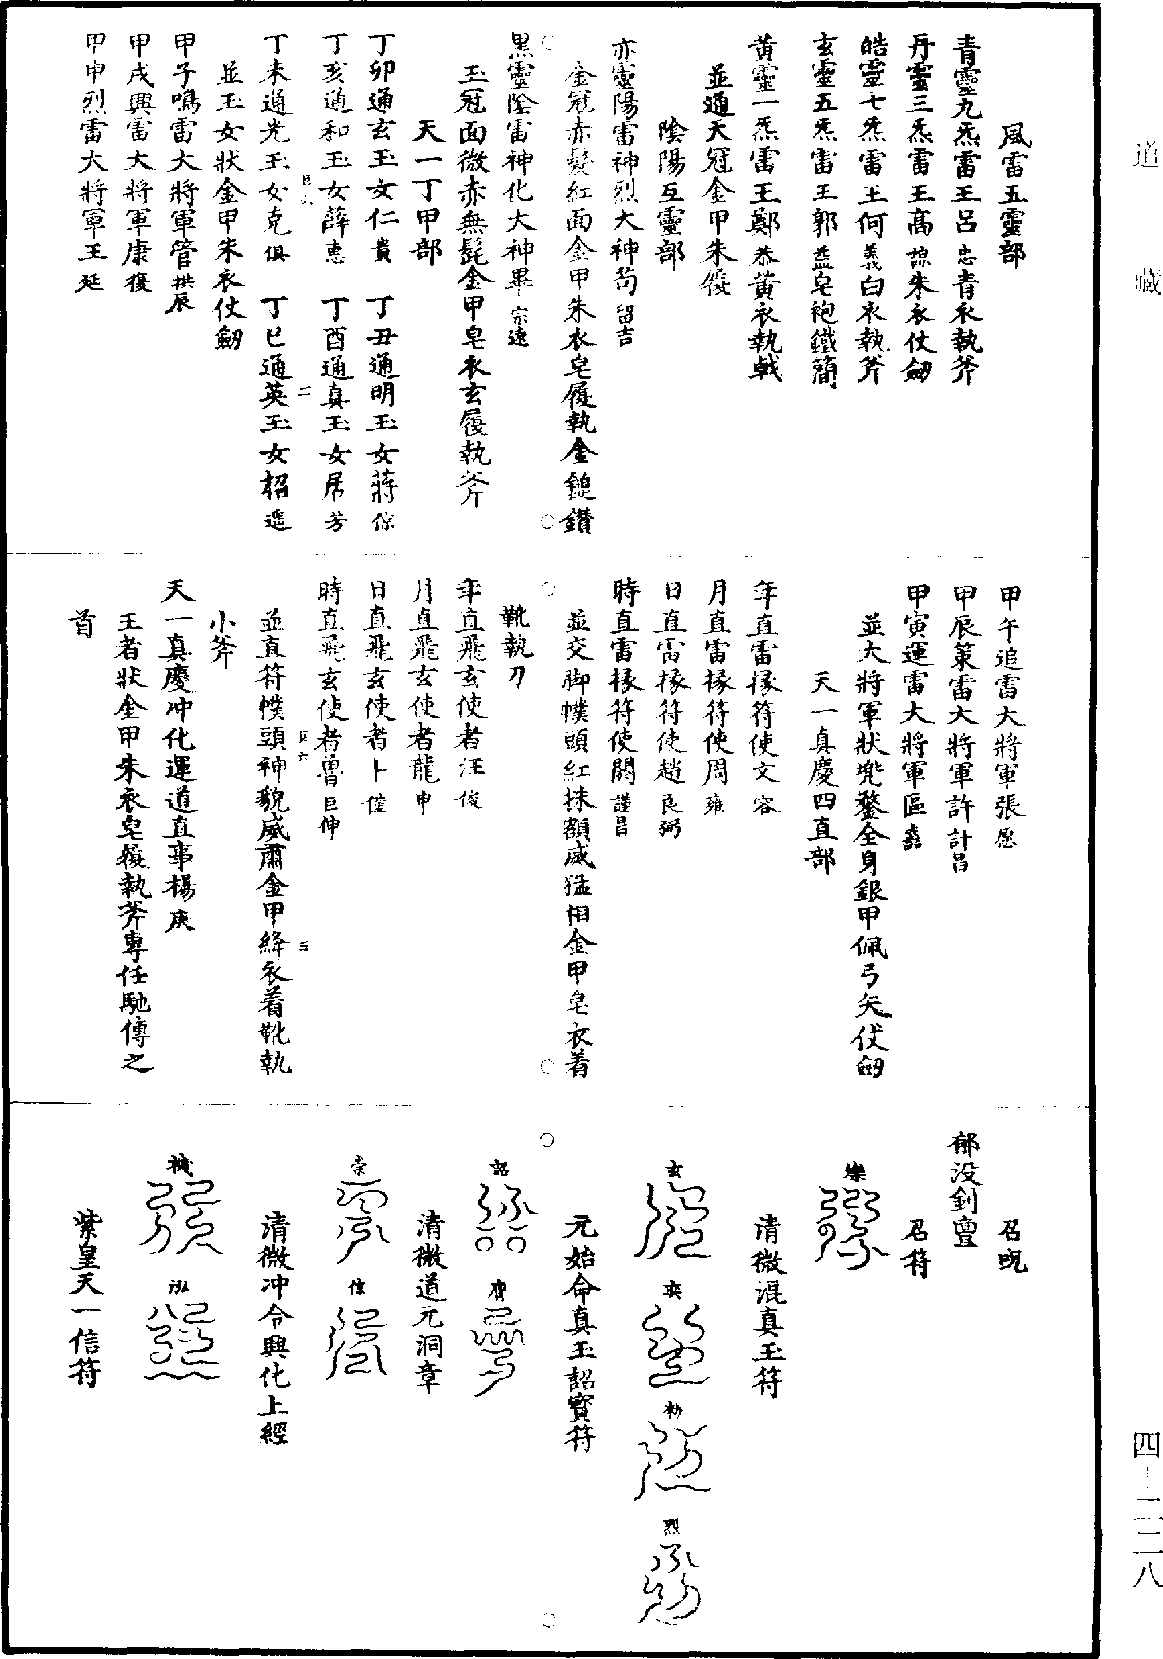 道藏
風雷五靈部
青靈九炁雷王呂忠青衣執斧
丹靈三炁雷王高諒朱衣仗劒
皓靈七炁雷王何義白衣執斧
玄靈五炁雷王郭益皂袍鐵簡
黃靈一炁雷王鄭恭黃衣執戟
並通天冠金甲朱履
陰陽互靈部
赤靈陽雷神烈大神苟留吉
金冠赤髮紅面金甲朱衣皂履執金鎚鑽
黑靈陰雷神化大神畢宗遠
玉冠面微赤無髭金甲皂衣玄履執斧
天一丁甲部
丁卯通玄玉女仁貴 丁丑通明玉女蔣倞
丁亥通和玉女薛惠 丁酉通真玉女席芳
丁未通光玉女克俱 丁巳通英玉女招遥
並玉女狀金甲朱衣仗劒
甲子鳴雷大將軍管拱辰
甲戌興雷大將軍康復
甲申烈雷大將軍王延
甲午追雷大將軍張愿
甲辰策雷大將軍許計昌
甲寅運雷大將軍區
並大將軍狀兜鍪全身銀甲佩弓矢仗劒
天一真慶四直部
年直雷掾符使文容
月直雷掾符使周雍
日直雷掾符使趙良弼
時直雷掾符使關謹昌
並交脚幞頭紅抹額威猛相金甲皂衣着
靴執刀
年直飛玄使者汪俊
月直飛玄使者龍申
日直飛玄使者卜
時直飛玄使者曹巨伸
並直符幞頭神貌威肅金甲絳衣着靴執
小斧
天一真慶冲化運道直事楊庚
王者狀金甲朱衣皂履執斧專任馳傳之
首
召呪
郁没釗亶
召符
樂
清微混真玉符
玄
奕
勑
烈
元始命真玉詔寶符
詔
膺
清微道元洞章
崇
倞
清微冲令興化上經
機
泓
紫皇天一信符
四-二二八